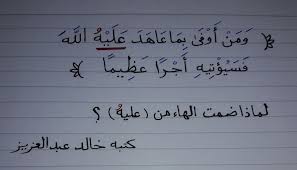 ﴿ وَمَنْ أَوْفَىٰ بِمَا عَاهَدَ عَلَيْهُ اللَّهَ
فَسَيُؤْتِيهِ أَجْرًا عَظِيمًا ﴾
لماذا ضمت الهاء من (عليهُ) ؟
كتبه خالد عبدالعزيز